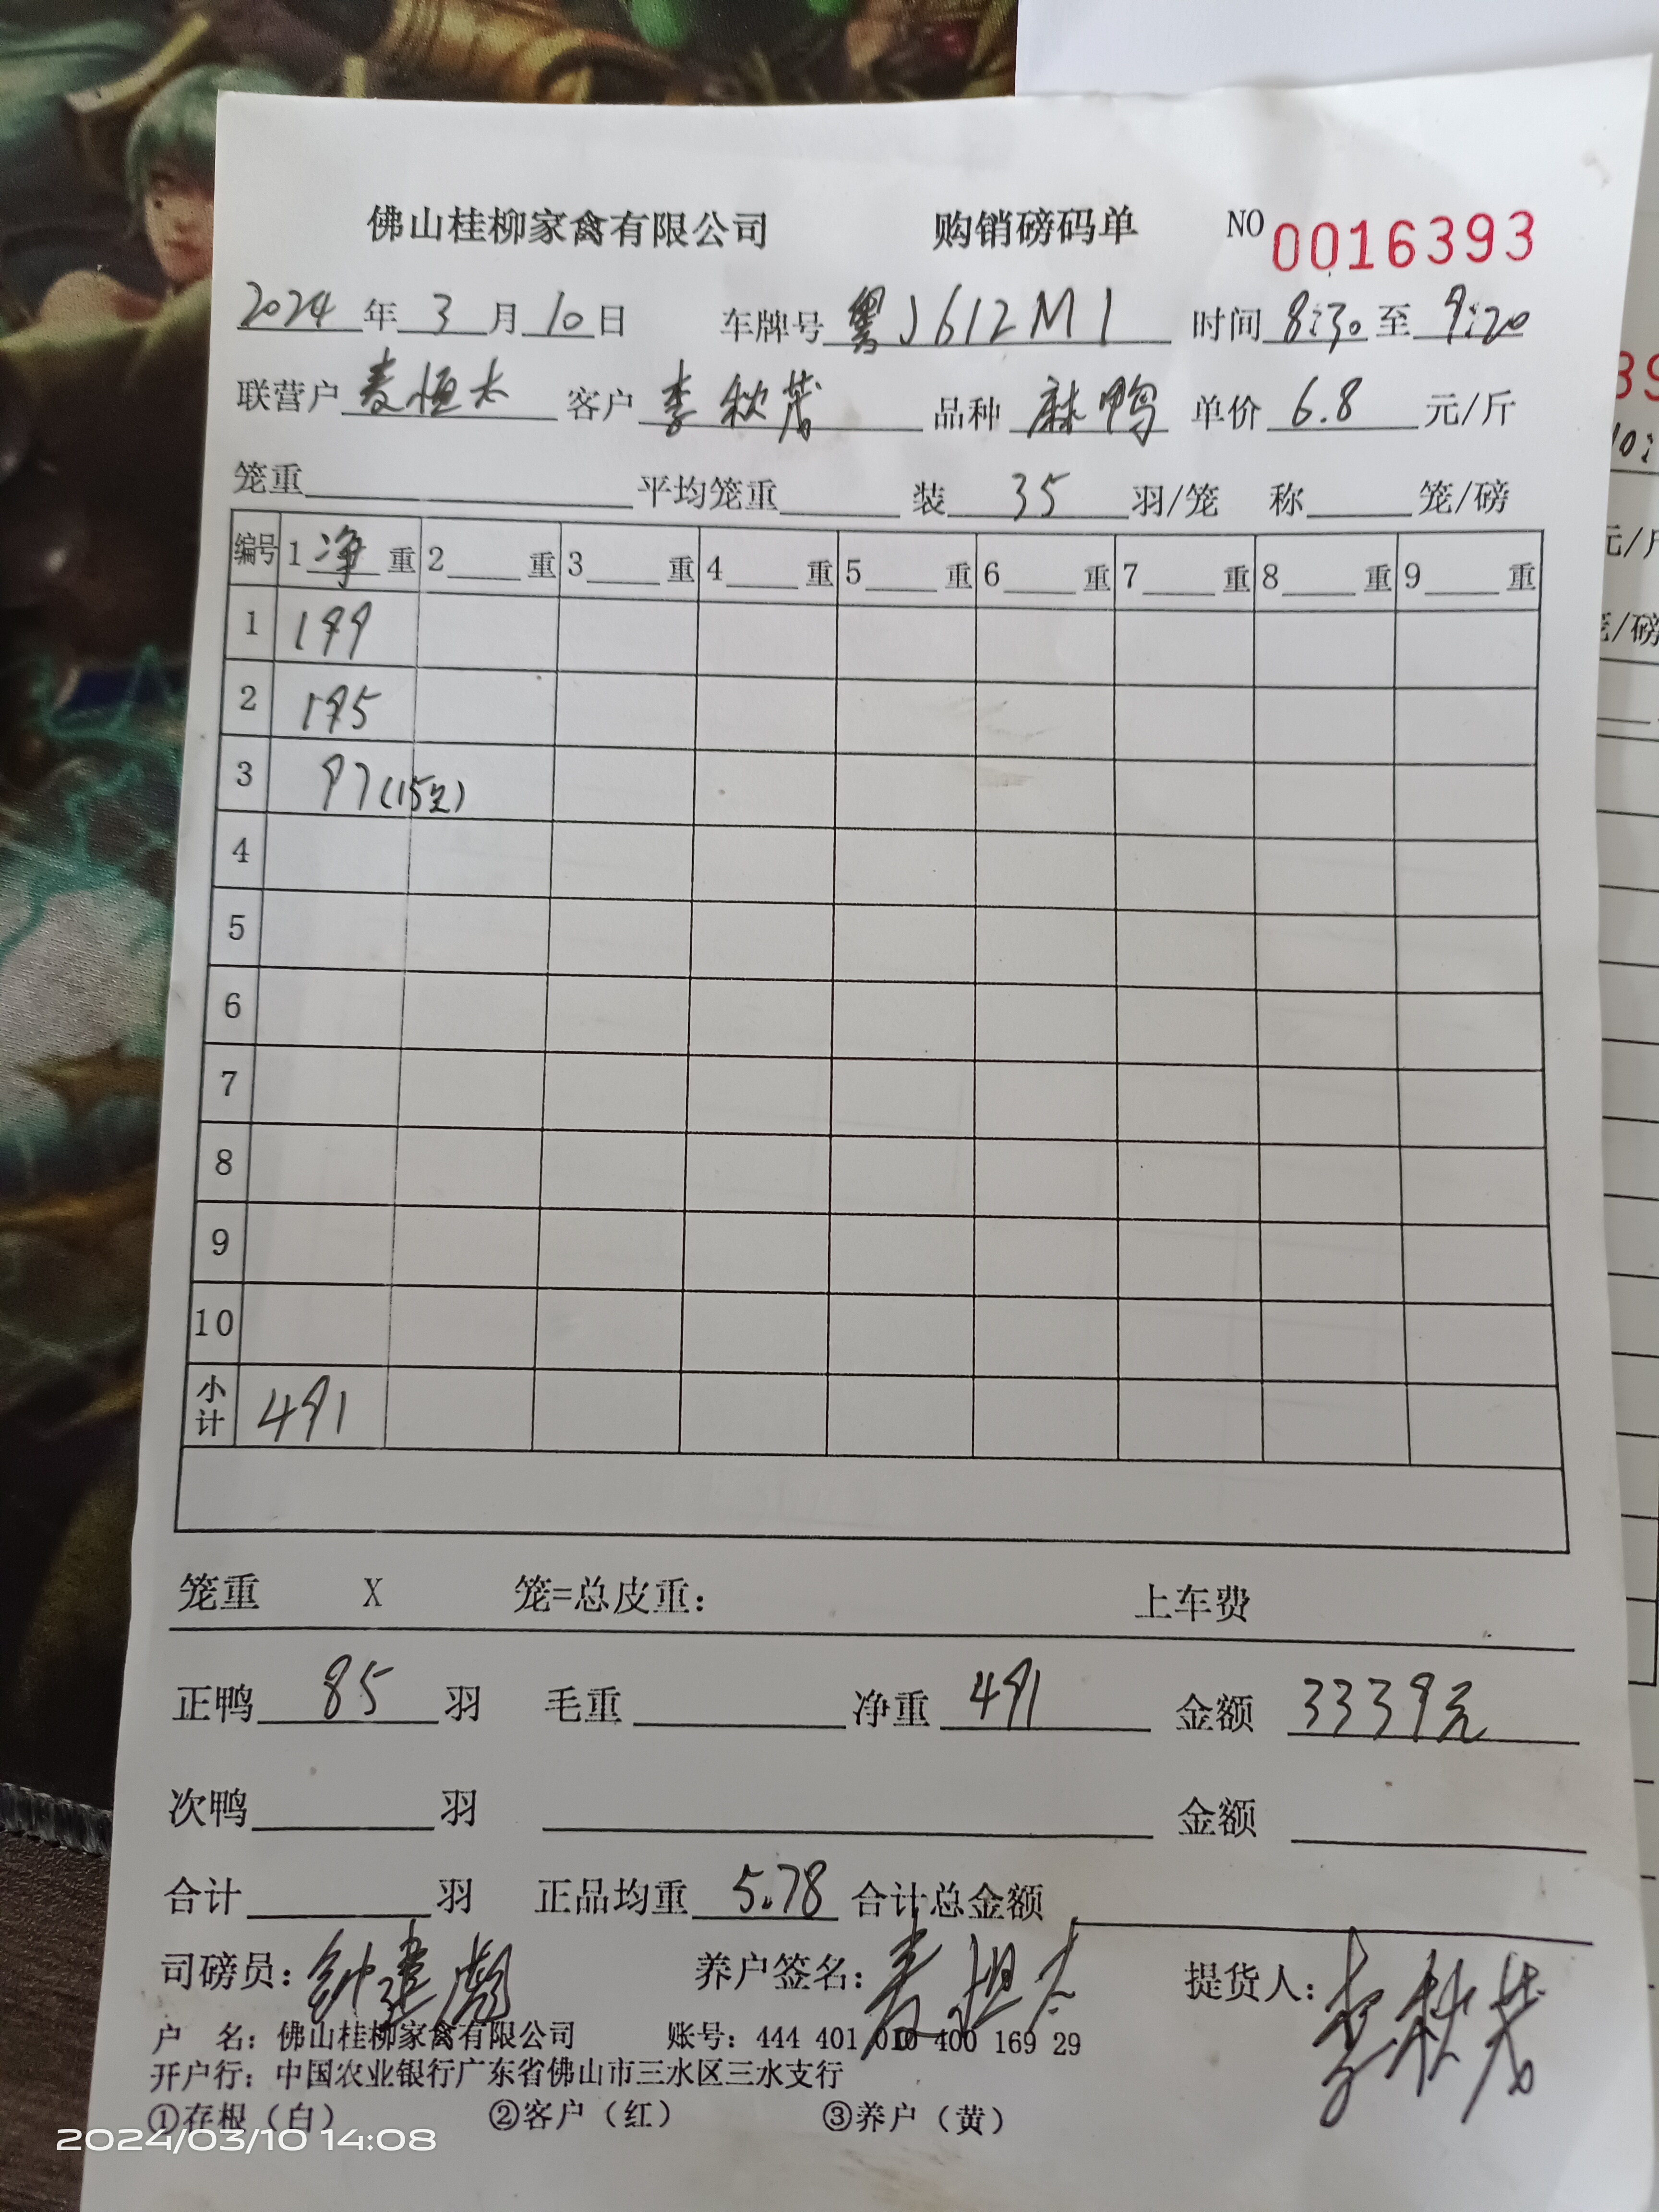 佛山桂柳家禽有限公司 购销磅码单 NO 0016393
2024年3月10日 车牌号 粤J612M1 时间 8:30 至 9:20
联营户 麦恒太 客户 李秋茂 品种 麻鸭 单价 6.8 元/斤
笼重 平均笼重 装 35 羽/笼 称 笼/磅
编号 1 净 重 2 重 3 重 4 重 5 重 6 重 7 重 8 重 9 重
1 199
2 195
3 97(15只)
4
5
6
7
8
9
10
小计 491
笼重 X 笼=总皮重: 上车费
正鸭 85 羽 毛重 净重 491 金额 3339元
次鸭 羽 金额
合计 羽 正品均重 5.78 合计总金额
司磅员: 养户签名: 麦恒太 提货人: 李秋茂
户 名: 佛山桂柳家禽有限公司 账号: 444 401 010 400 169 29
开户行: 中国农业银行广东省佛山市三水区三水支行
①存根(白) ②客户(红) ③养户(黄)
2024/03/10 14:08